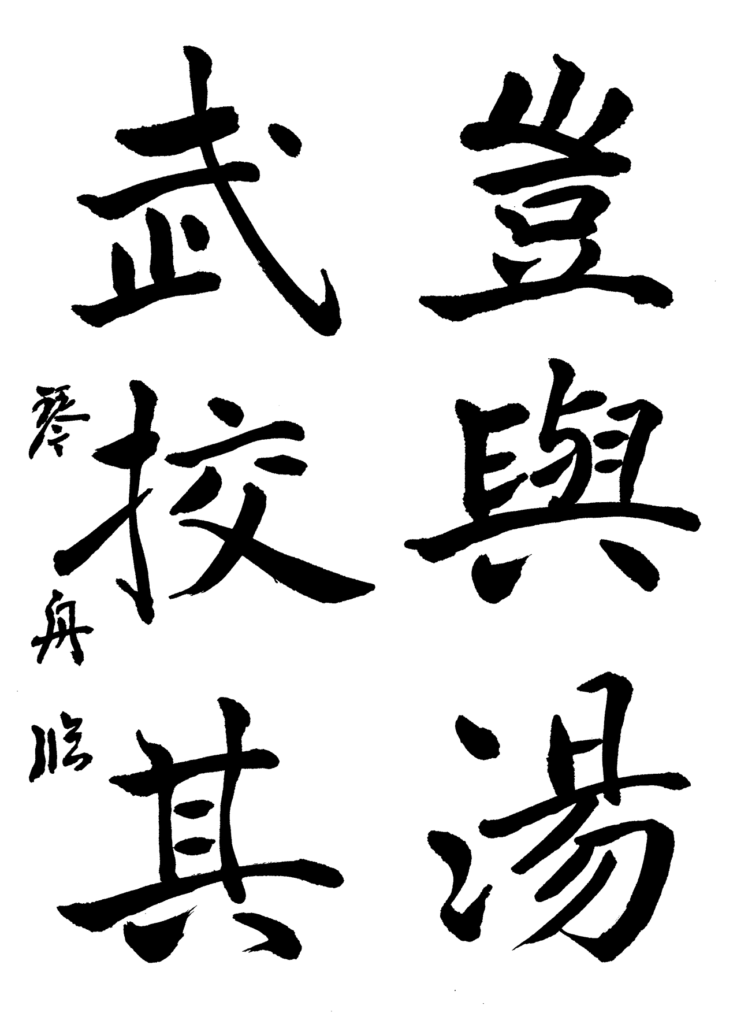 豈與湯
武挍其
琴舟臨